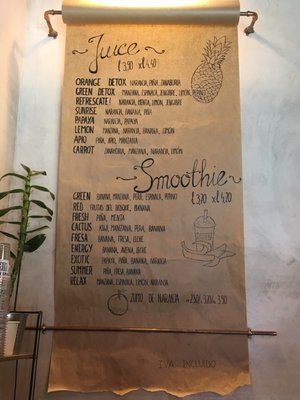 ~ Juice ~
ORANGE DETOX NARANJA, PIÑA, ZANAHORIA
GREEN DETOX MANZANA, ESPINACA, JENGIBRE, LIMÓN, PEPINO
REFRESCATE! NARANJA, MENTA, LIMON, JENGIBRE
SUNRISE NARANJA, BANANA, PIÑA
PAPAYA NARANJA, PAPAYA
LEMON MANZANA, NARANJA, BANANA, LIMÓN
APIO PIÑA, APIO, MANZANA
CARROT ZANAHORIA, MANZANA, NARANJA, LIMON
~ Smoothie ~
GREEN BANANA, MANZANA, PERA, ESPINACA, PEPINO
RED FRUTAS DEL BOSQUE, BANANA
FRESH PIÑA, MENTA
CACTUS KIWI, MANZANA, PERA, BANANA
FRESA BANANA, FRESA, LECHE
ENERGY BANANA, AVENA, LECHE
EXOTIC PAPAYA, PIÑA, BANANA, NARANJA
SUMMER PIÑA, FRESA, BANANA
RELAX MANZANA, ESPINACA, LIMON, NARANJA
ZUMO DE NARANJA
IVA INCLUIDO